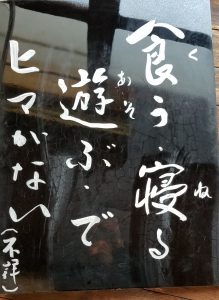 食う・寝る
遊ぶ・で
ヒマがない(不詳)
く
ね
あそ